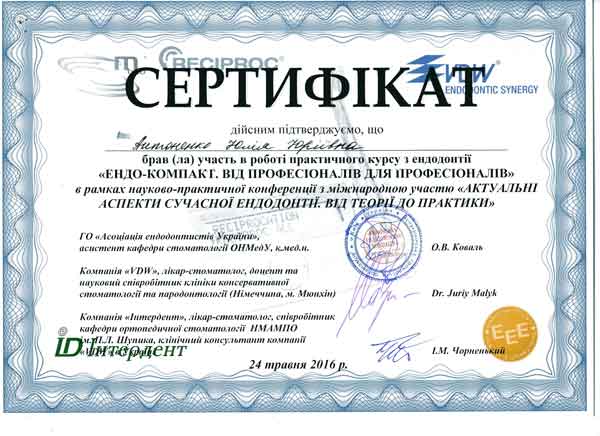 RECIPROC®
VDW®
ENDODONTIC SYNERGY
СЕРТИФІКАТ
дійсним підтверджуємо, що
Антоненко Юлія Юріївна
брав (ла) участь в роботі практичного курсу з ендодонтії
«ЕНДО-КОМПАКТ. ВІД ПРОФЕСІОНАЛІВ ДЛЯ ПРОФЕСІОНАЛІВ»
в рамках науково-практичної конференції з міжнародною участю «АКТУАЛЬНІ
АСПЕКТИ СУЧАСНОЇ ЕНДОДОНТІЇ. ВІД ТЕОРІЇ ДО ПРАКТИКИ»
ГО «Асоціація ендодонтистів України»,
асистент кафедри стоматології ОНМедУ, к.мед.н.
О.В. Коваль
Компанія «VDW», лікар-стоматолог, доцент та
науковий співробітник клініки консервативної
стоматології та пародонтології (Німеччина, м. Мюнхін)
Dr. Juriy Malyk
Компанія «Інтердент», лікар-стоматолог, співробітник
кафедри ортопедичної стоматології НМАМПО
ім. П.Л. Шупика, клінічний консультант компанії
І.М. Чорненький
EEE
Інтердент
24 травня 2016 р.